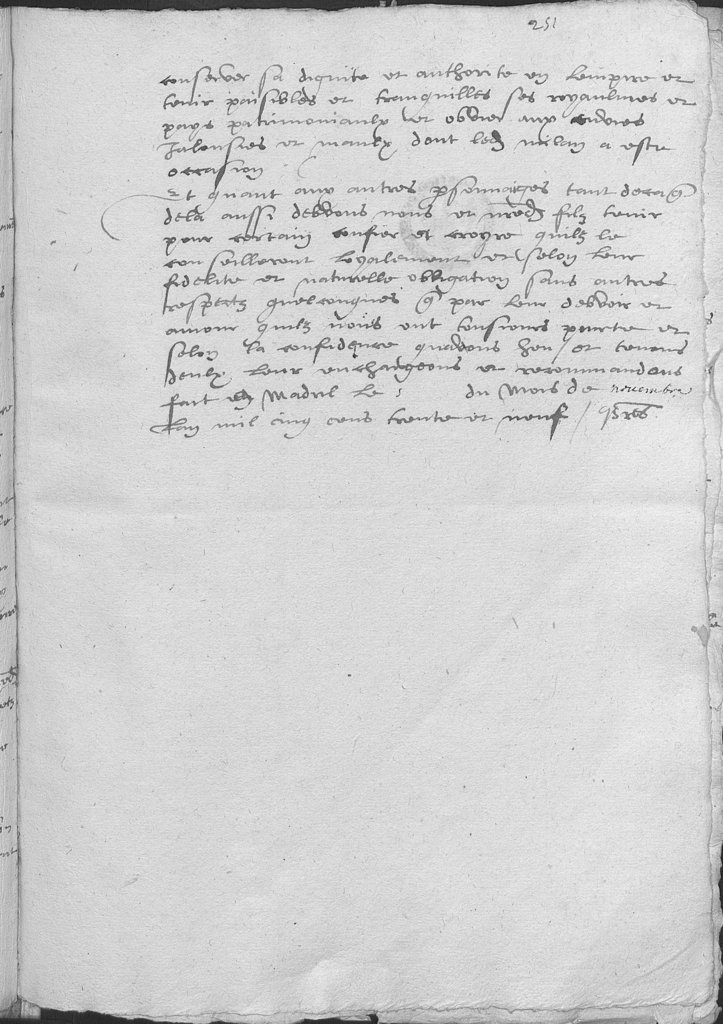 251
conserver sa dignite et authorite en lempire et
tenir paisibles et tranquilles ses royaulmes et
pays patrimoniaulx et obvier aux envies
Jalousies et maulx dont led milan a este
occasion
Et quant aux autres psonnaiges tant deca q
dela aussi debvons nous et nred filz tenir
pour certain confier et croyre quilz le
conseilleront loyalement et selon leur
fidelite et naturelle obligation sans autres
respectz quelconques q par leur debvoir et
amour quilz nous ont tousiours pourte et
selon la confidence quavons heu et tenons
deulx leur enchargeons et recommandons
fait en Madril le 5 du mois de novembre
Lan mil cinq cens trente et neuf /